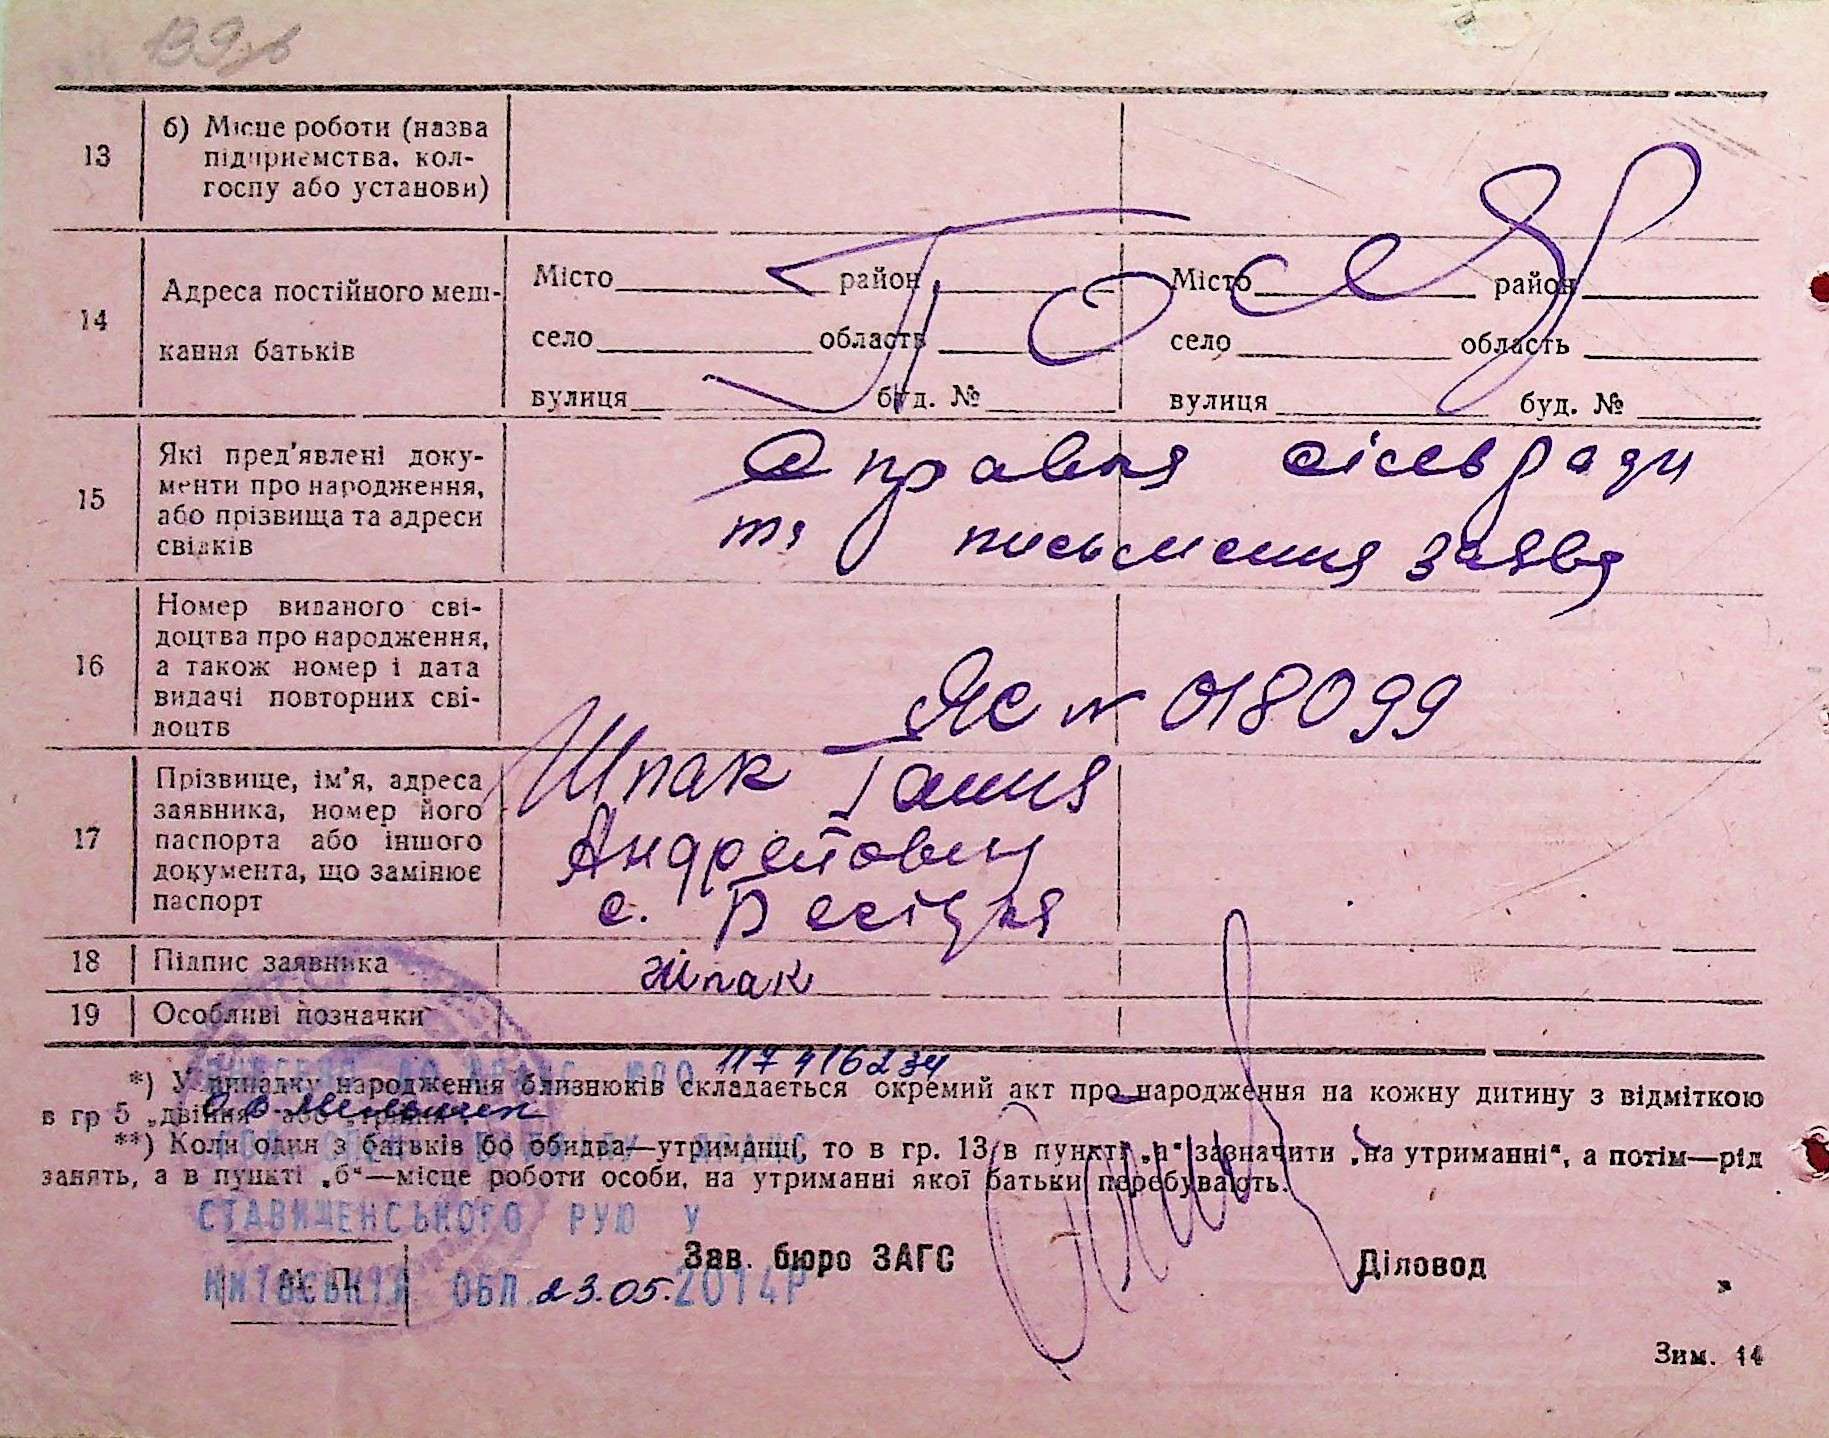 139
13
б) Місце роботи (назва
підприємства, кол-
госпу або установи)
14
Адреса постійного меш-
кання батьків
Місто район
село область
вулиця буд. №
Місто район
село область
вулиця буд. №
15
Які пред'явлені доку-
менти про народження,
або прізвища та адреси
свідків
Справка сільради
та письменна заява
16
Номер виданого сві-
доцтва про народження,
а також номер і дата
видачі повторних сві-
доцтв
ЯС № 018099
17
Прізвище, ім'я, адреса
заявника, номер його
паспорта або іншого
документа, що замінює
паспорт
Шпак Ганна
Андреївни
с.
18
Підпис заявника
Шпак
19
Особливі позначки
117416234
*) У випадку народження близнюків складається окремий акт про народження на кожну дитину з відміткою
в гр 5 „двійня" або „трійня".
**) Коли один з батьків бо обидва—утриманці, то в гр. 13 в пункті „а" зазначити „на утриманні", а потім—рід
занять, а в пункті „б"—місце роботи особи, на утриманні якої батьки перебувають.
СТАВИЩЕНСЬКОГО РУЮ У
Зав. бюро ЗАГС
Діловод
М. П.
КИЇВСЬКІЙ ОБЛ. 23.05.2014Р
Зим. 14